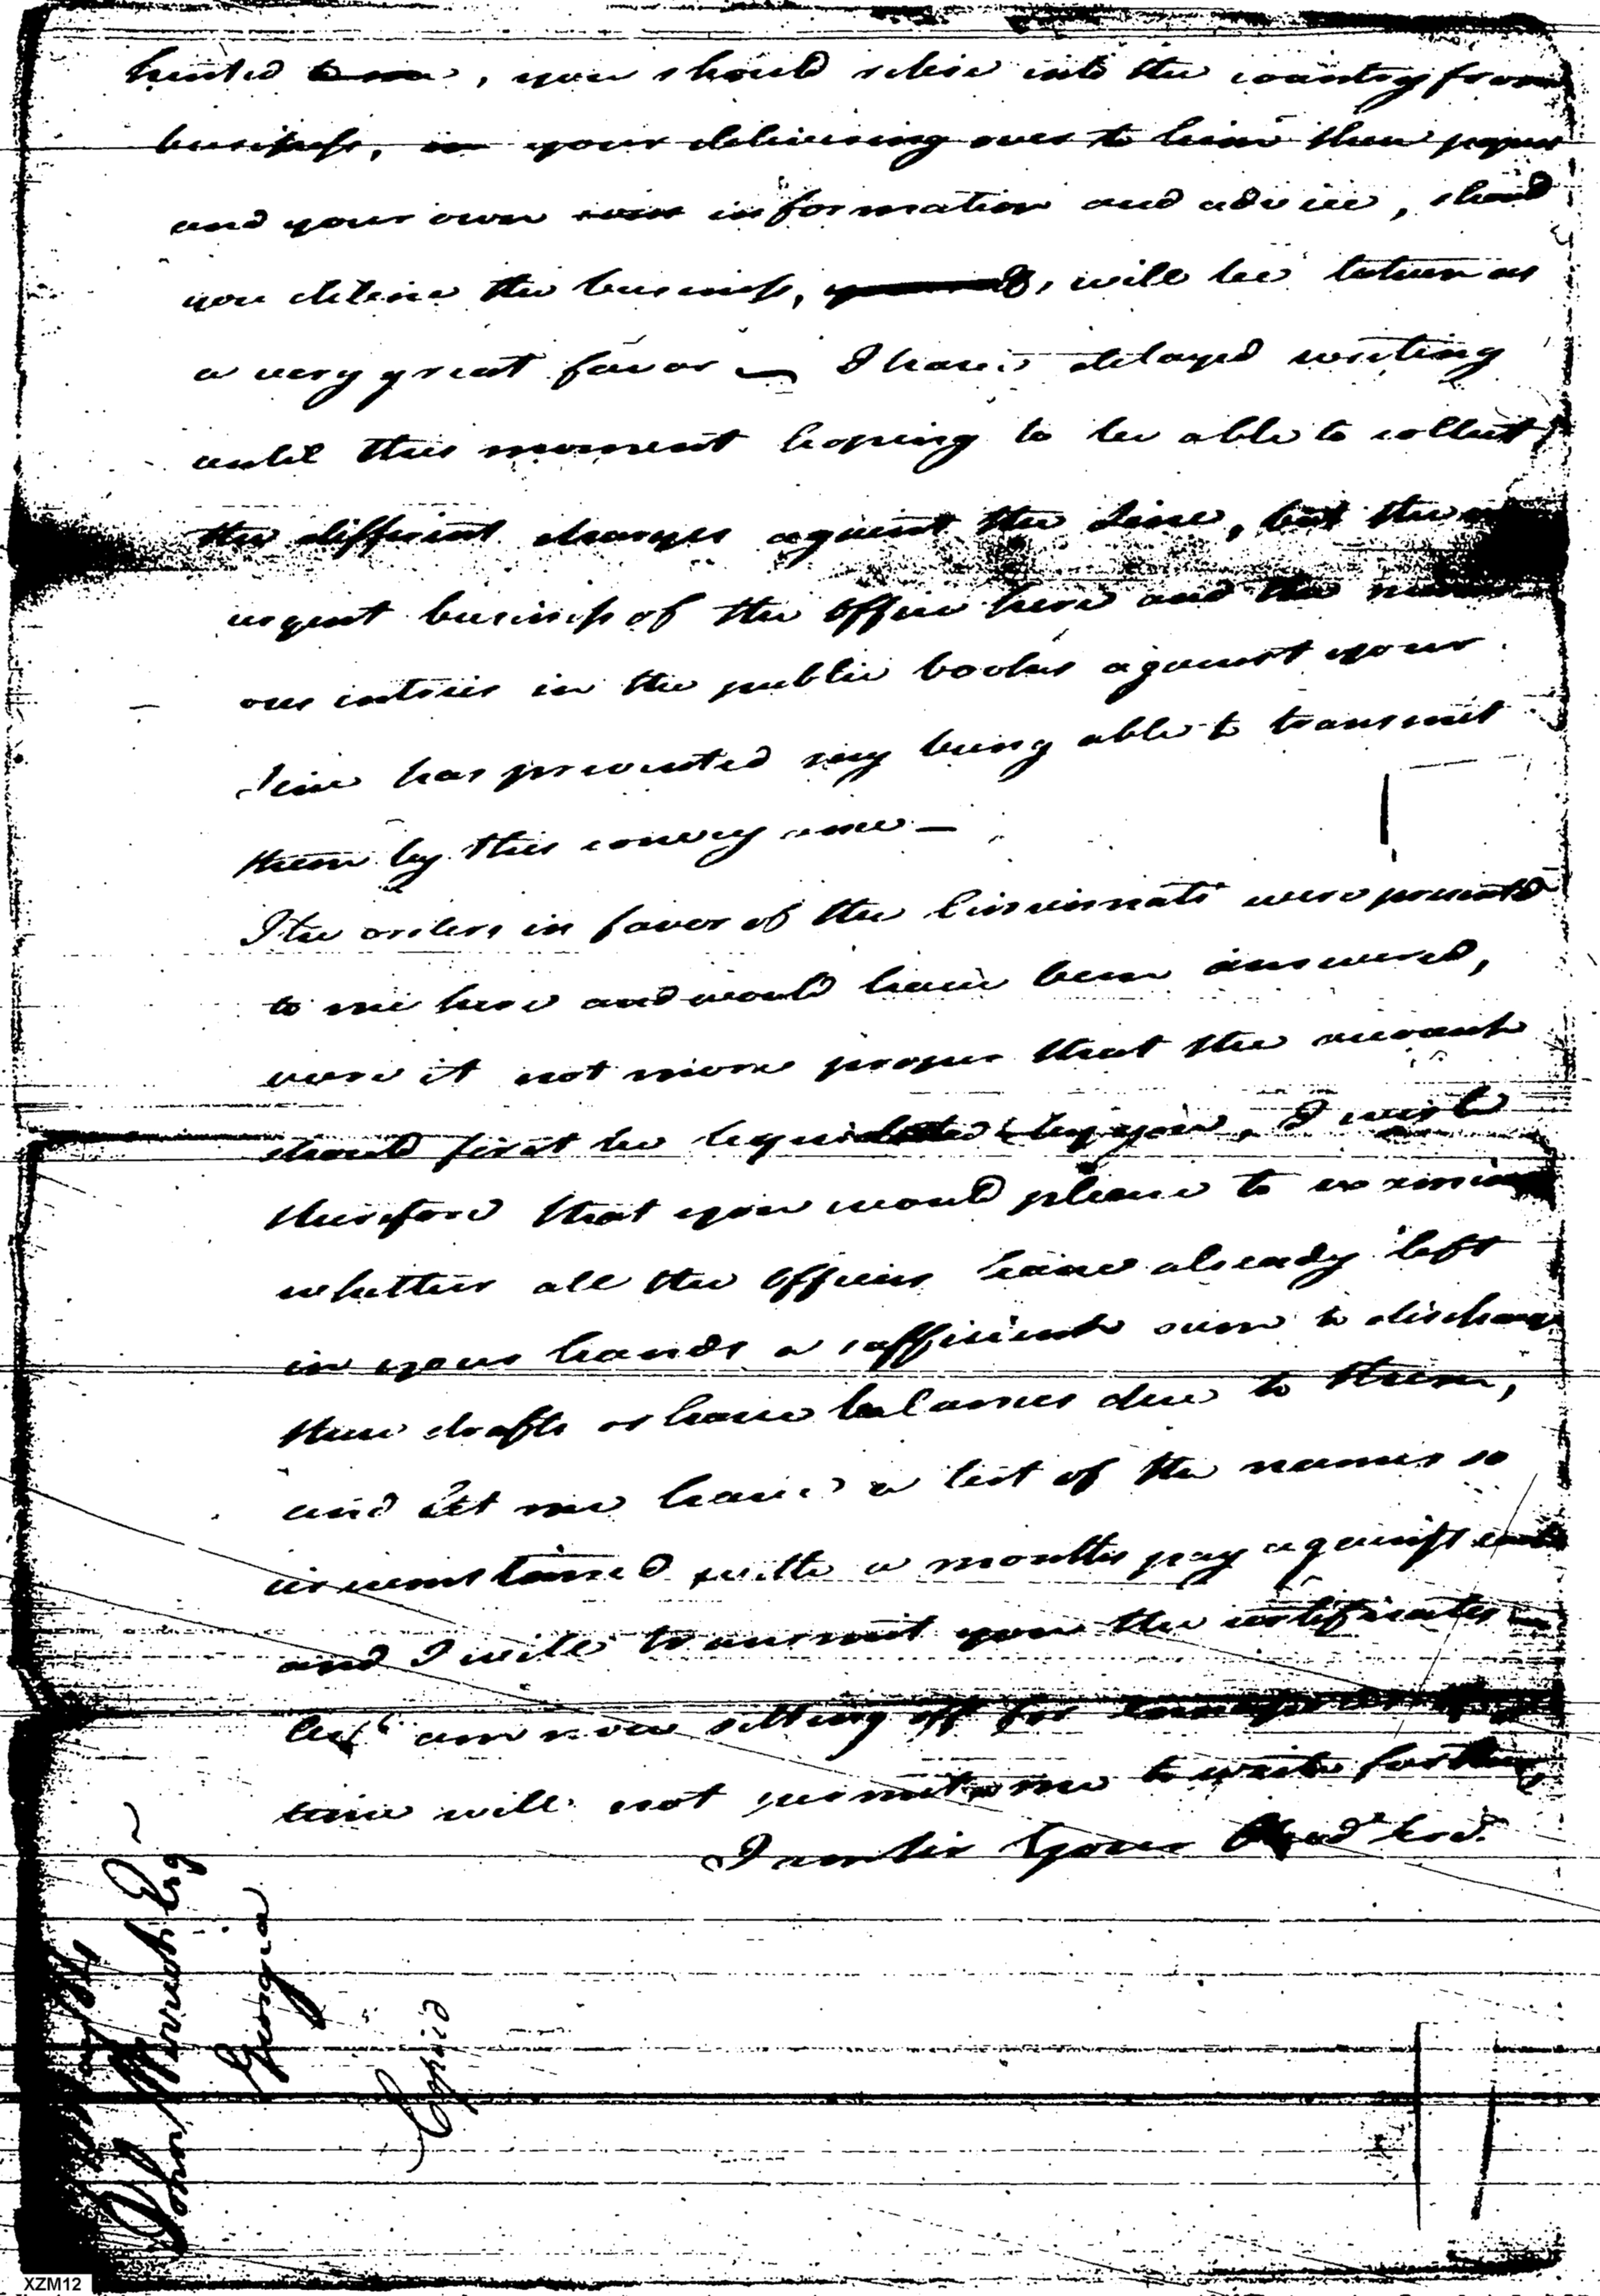 hinted to me, you should retire into the country from
business, in your delivering over to him these papers
and your own information and advice, should
you decline the business, will be taken as
a very great favor — I have delayed writing
until this moment hoping to be able to collect
the different charges against the line, but the
urgent business of the office here and the numer
ous entries in the public books against your
line has prevented my being able to transmit
them by this conveyance —
The orders in favor of the Cincinnati were presented
to me here and would have been answered,
were it not more proper that the accounts
should first be liquidated by you, I wish
therefore that you would please to examine
whether all the officers have already left
in your hands a sufficient sum to discharge
these drafts or have balances due to them,
and let me have a list of the names so
circumstanced with a months pay against each
and I will transmit you the certificates
am now setting off for
time will not permit me to write further,
I am Sir Your Obed. Serv.
John Esq
Georgia
Copied
XZM12